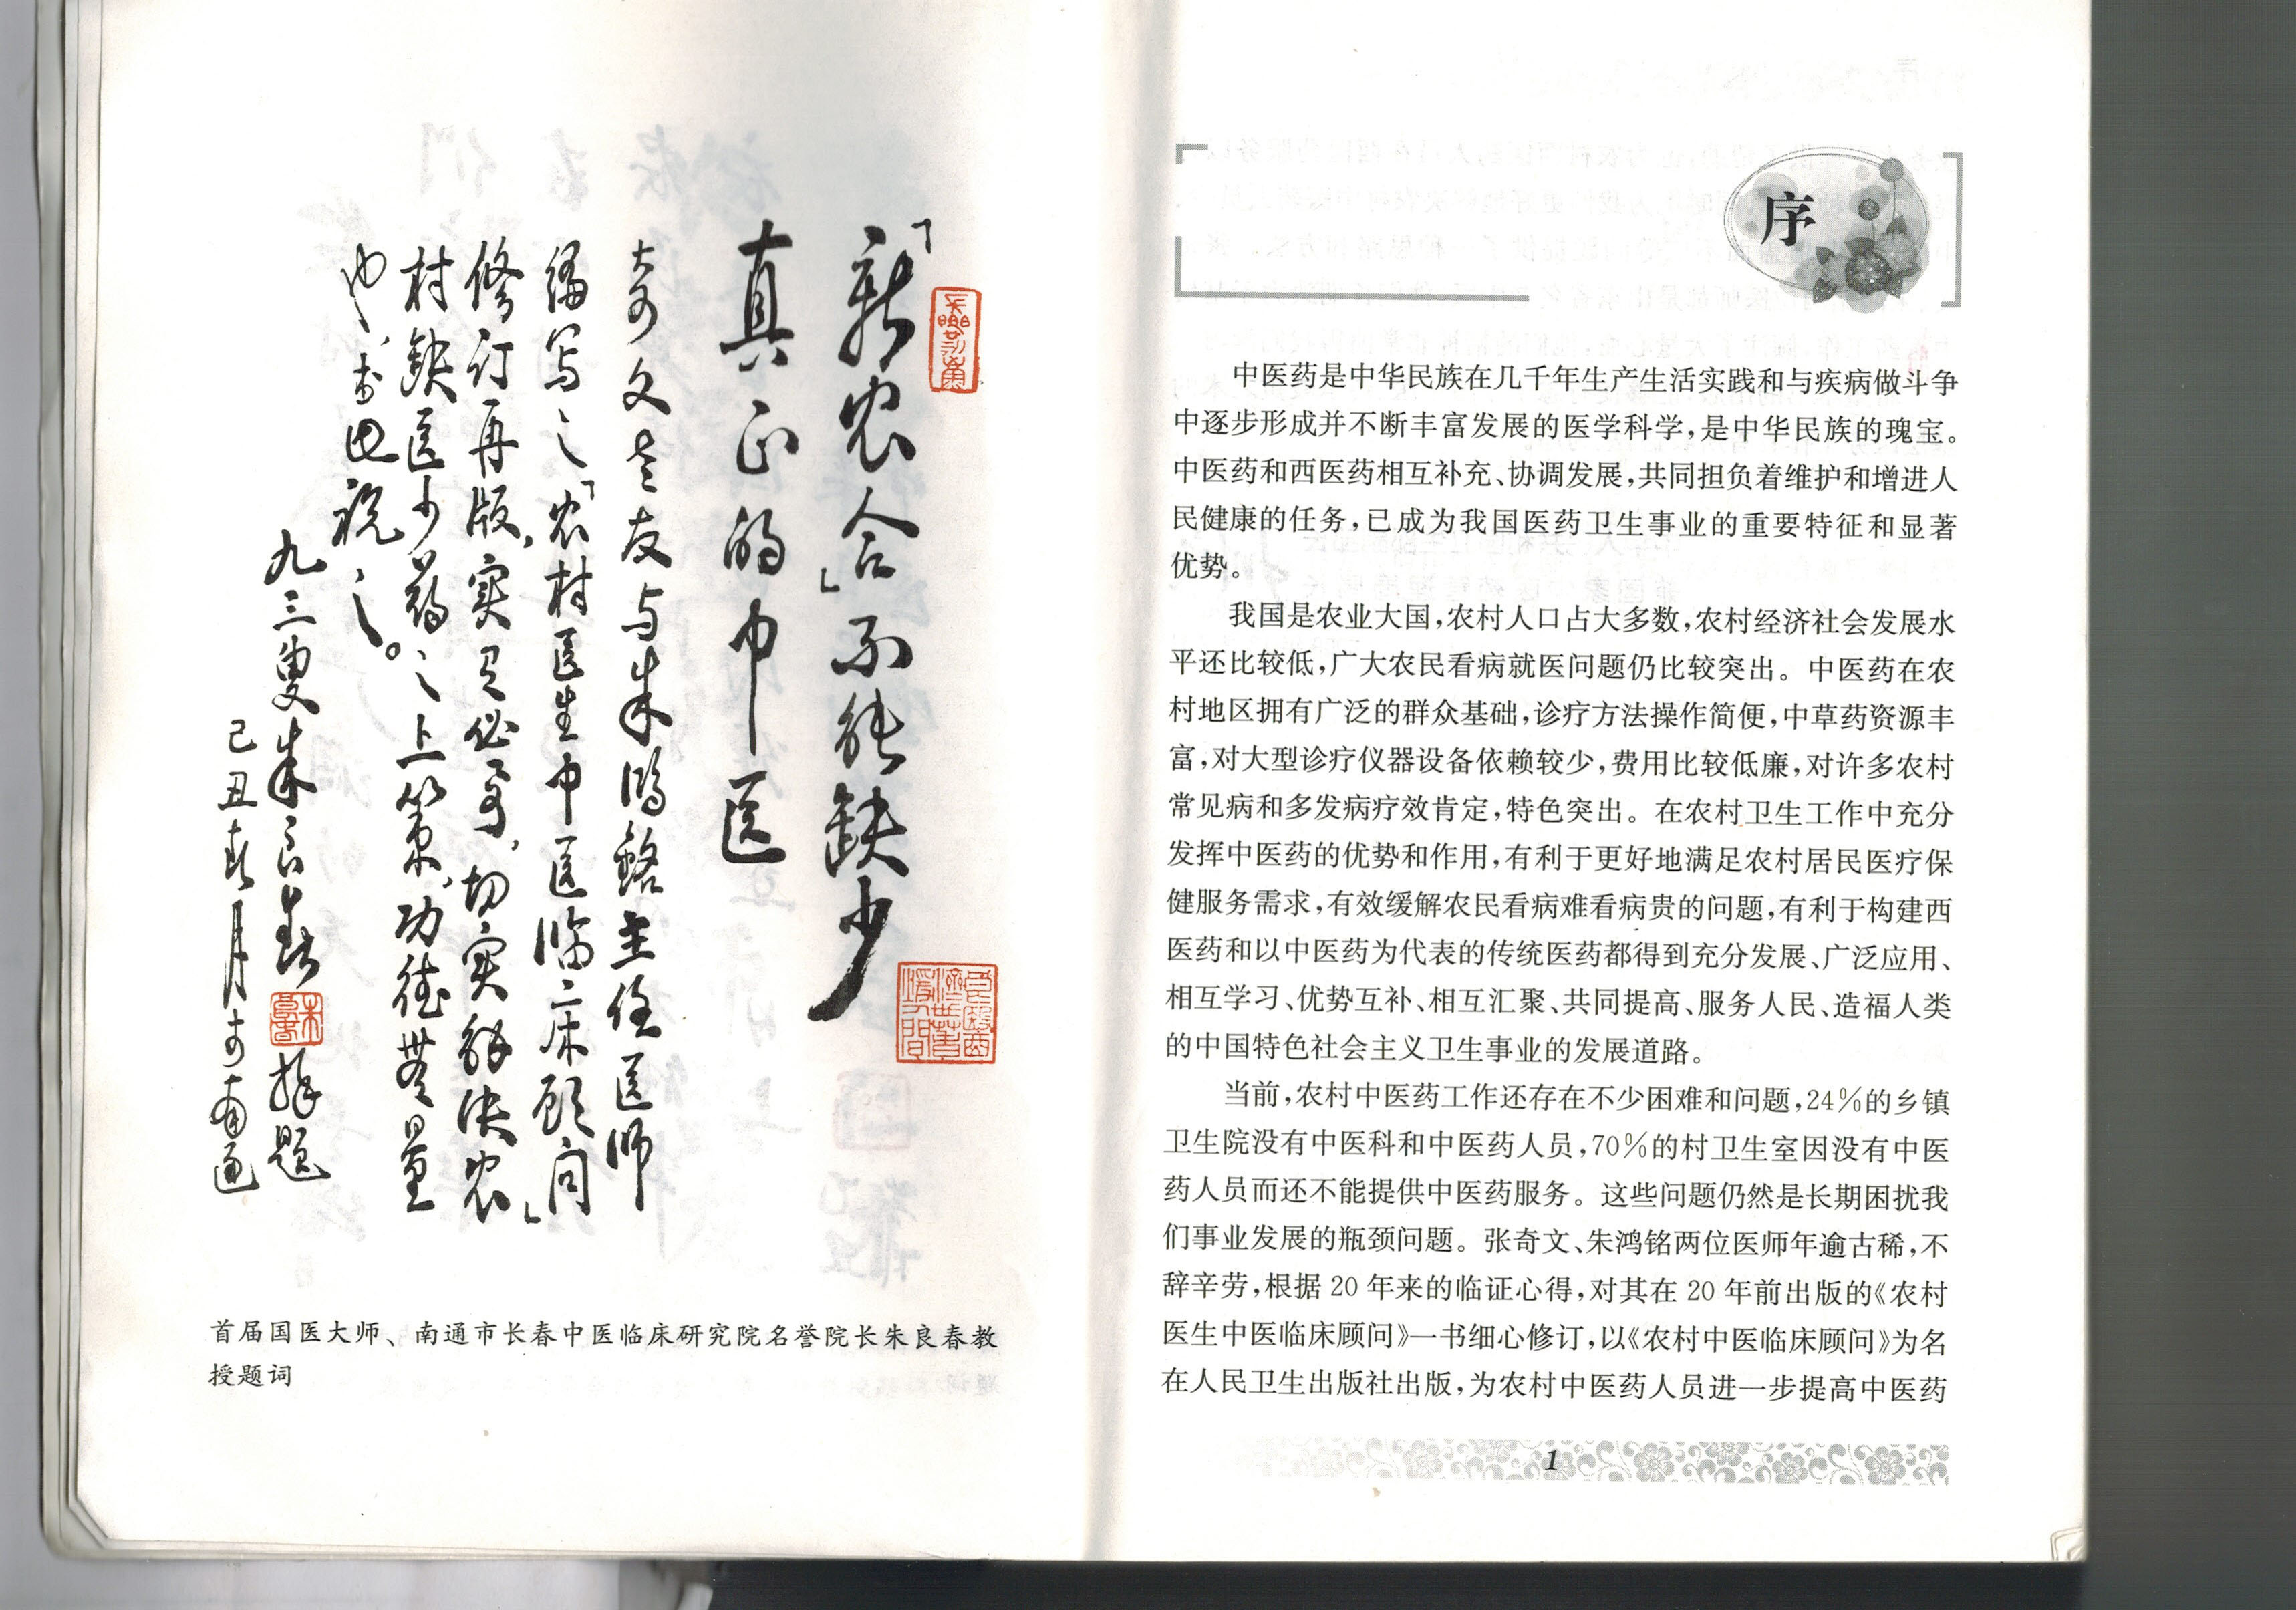 「新农合」不能缺少
真正的中医
奇文老友与朱鸿铭主任医师
编写之「农村医生中医临床顾问」
修订再版，实习必要，切实解决农
村缺医少药之上策，功德无量
也，书此祝之。
九三叟朱良春拜题
己丑春月于南通
首届国医大师、南通市长春中医临床研究院名誉院长朱良春教
授题词
序
中医药是中华民族在几千年生产生活实践和与疾病做斗争
中逐步形成并不断丰富发展的医学科学，是中华民族的瑰宝。
中医药和西医药相互补充、协调发展，共同担负着维护和增进人
民健康的任务，已成为我国医药卫生事业的重要特征和显著
优势。
我国是农业大国，农村人口占大多数，农村经济社会发展水
平还比较低，广大农民看病就医问题仍比较突出。中医药在农
村地区拥有广泛的群众基础，诊疗方法操作简便，中草药资源丰
富，对大型诊疗仪器设备依赖较少，费用比较低廉，对许多农村
常见病和多发病疗效肯定，特色突出。在农村卫生工作中充分
发挥中医药的优势和作用，有利于更好地满足农村居民医疗保
健服务需求，有效缓解农民看病难看病贵的问题，有利于构建西
医药和以中医药为代表的传统医药都得到充分发展、广泛应用、
相互学习、优势互补、相互汇聚、共同提高、服务人民、造福人类
的中国特色社会主义卫生事业的发展道路。
当前，农村中医药工作还存在不少困难和问题，24%的乡镇
卫生院没有中医科和中医药人员，70%的村卫生室因没有中医
药人员而还不能提供中医药服务。这些问题仍然是长期困扰我
们事业发展的瓶颈问题。张奇文、朱鸿铭两位医师年逾古稀，不
辞辛劳，根据20年来的临证心得，对其在20年前出版的《农村
医生中医临床顾问》一书细心修订，以《农村中医临床顾问》为名
在人民卫生出版社出版，为农村中医药人员进一步提高中医药
1